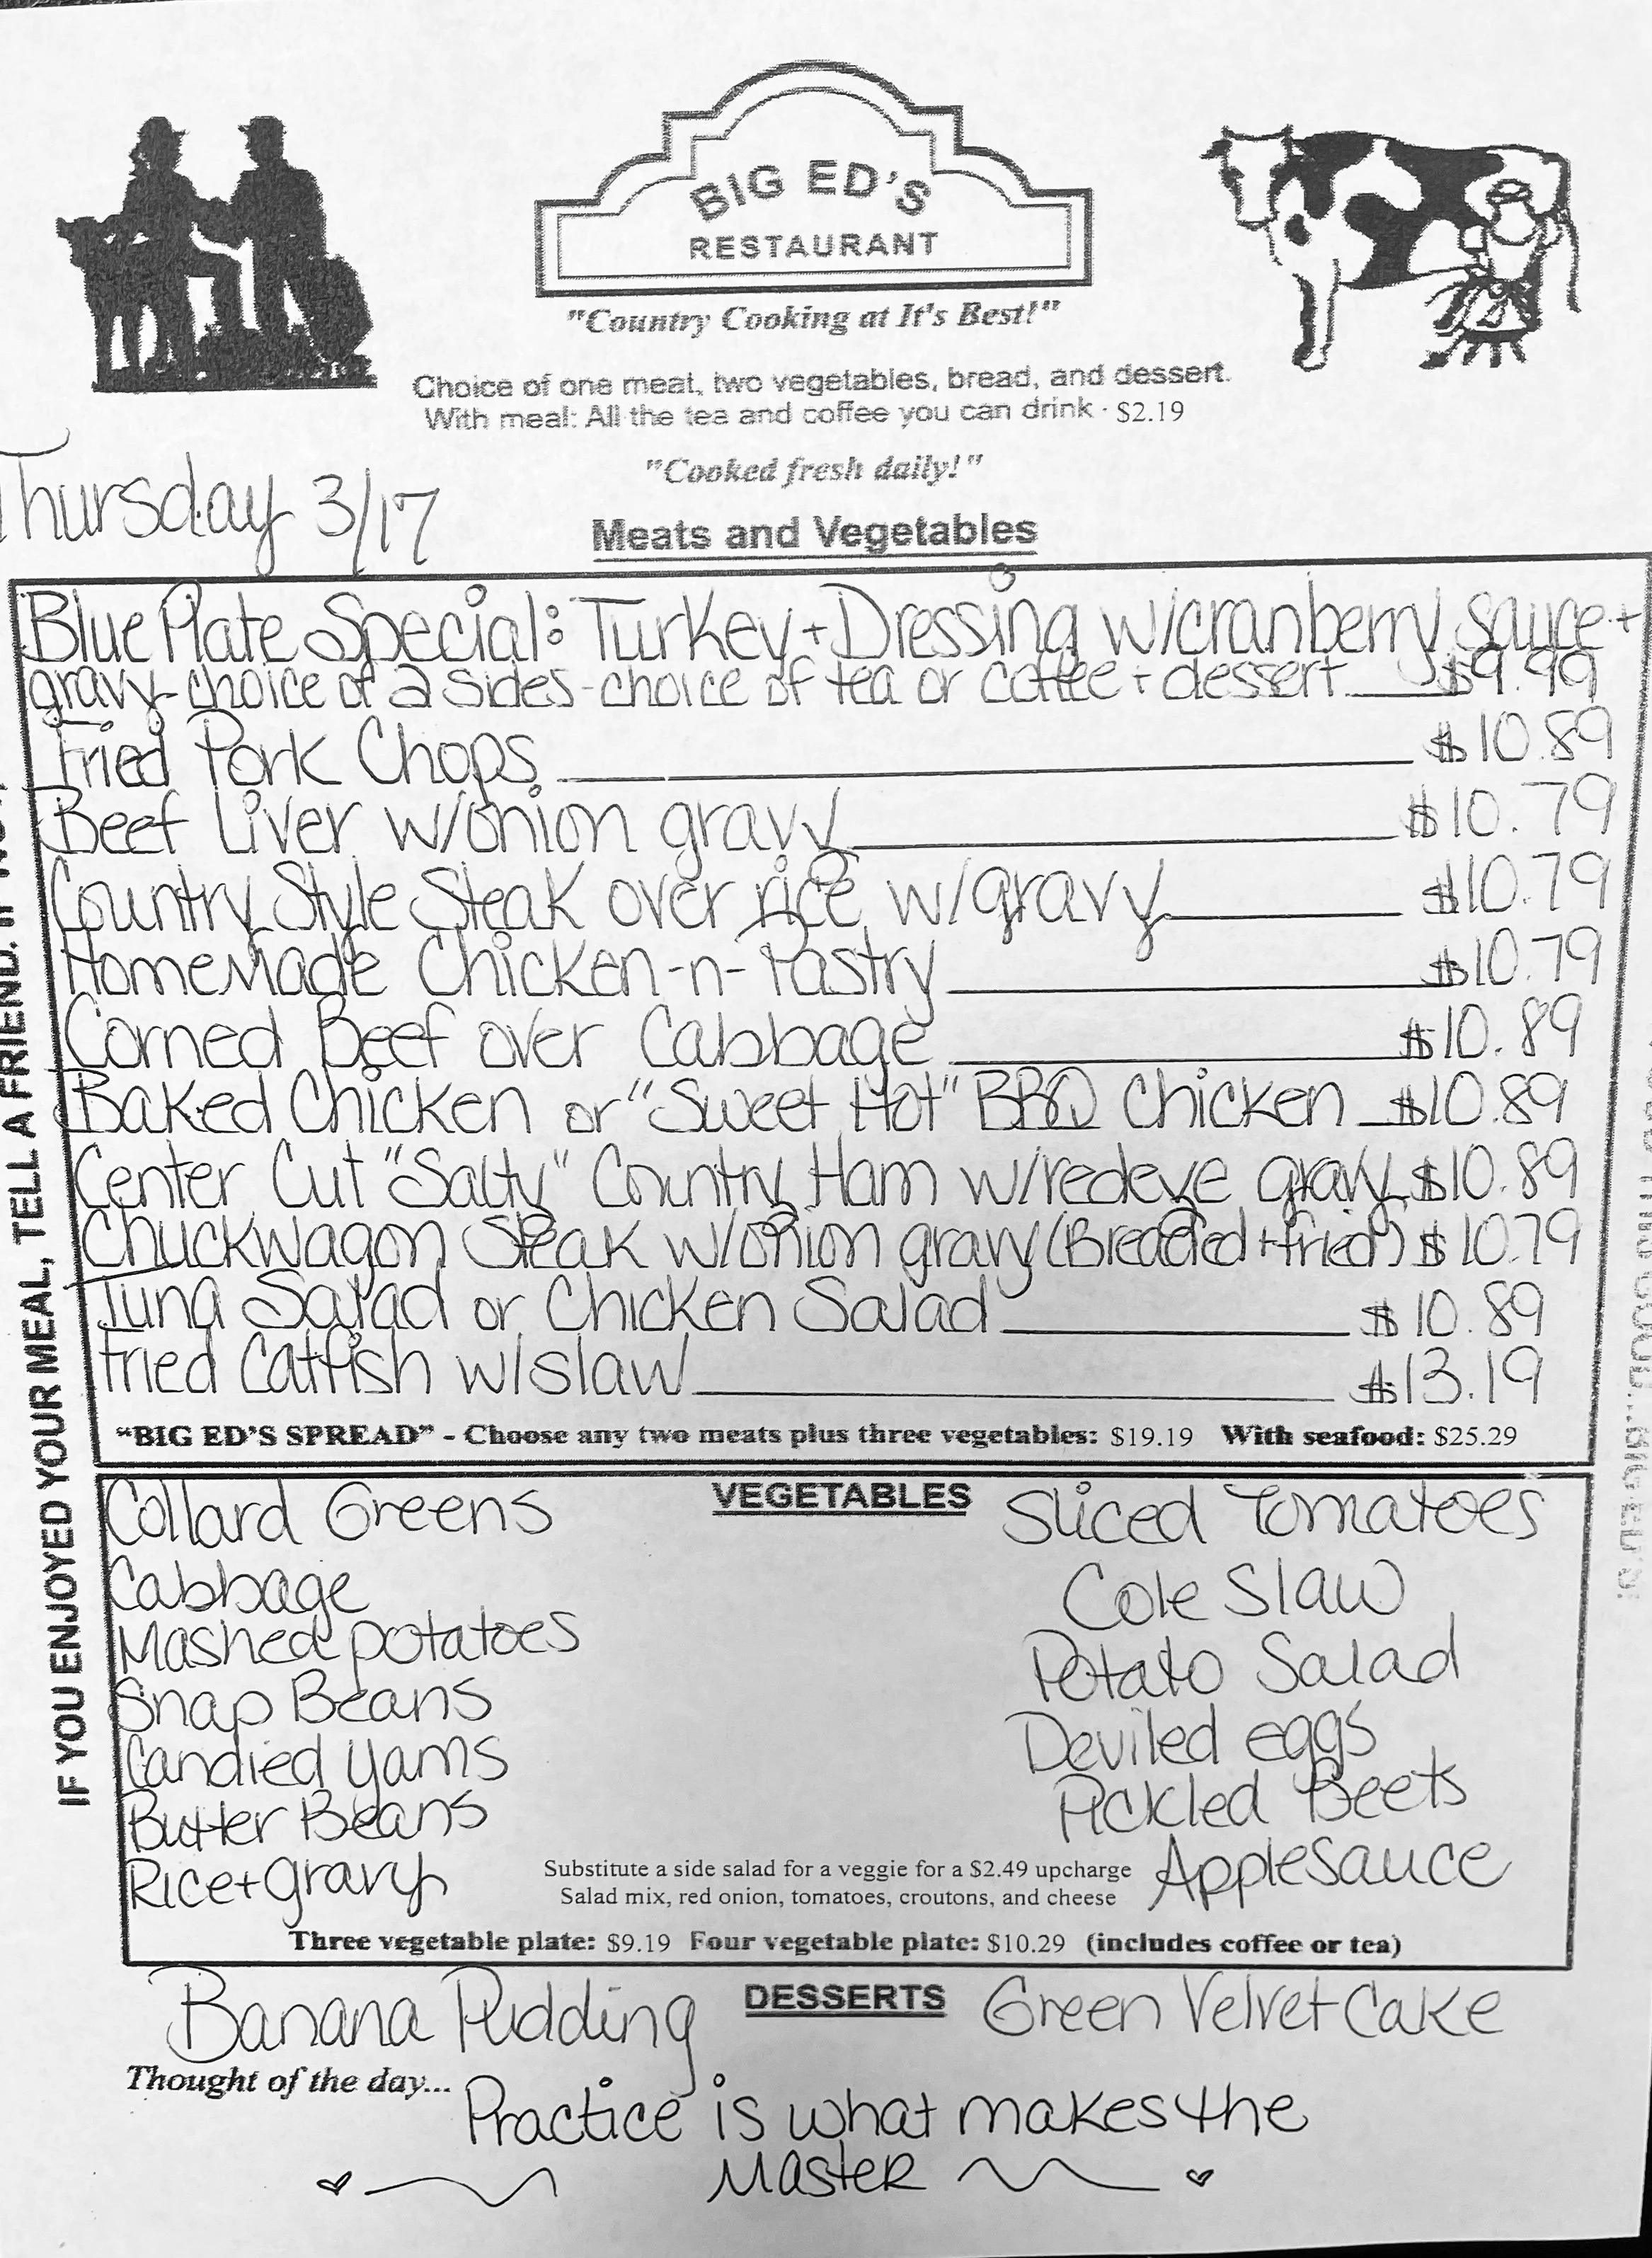 BIG ED'S
RESTAURANT
"Country Cooking at It's Best!"
Choice of one meat, two vegetables, bread, and dessert.
With meal: All the tea and coffee you can drink · $2.19
"Cooked fresh daily!"
Thursday 3/17
Meats and Vegetables
Blue Plate Special: Turkey + Dressing w/cranberry sauce +
gravy - choice of 2 sides - choice of tea or coffee + dessert $9.99
Fried Pork Chops $10.89
Beef Liver w/onion gravy $10.79
Country Style Steak over rice w/gravy $10.79
HomeMade Chicken-n-Pastry $10.79
Corned Beef over Cabbage $10.89
Baked Chicken or "Sweet Hot" BBQ Chicken $10.89
Center Cut "Salty" Country Ham w/redeye gravy $10.89
Chuckwagon Steak w/onion gravy (Breaded + fried) $10.79
Tuna Salad or Chicken Salad $10.89
Fried Catfish w/slaw $13.19
"BIG ED'S SPREAD" - Choose any two meats plus three vegetables: $19.19 With seafood: $25.29
VEGETABLES
Collard Greens
Cabbage
Mashed potatoes
Snap Beans
Candied Yams
Butter Beans
Rice + gravy
Sliced Tomatoes
Cole Slaw
Potato Salad
Deviled eggs
Pickled Beets
Applesauce
Substitute a side salad for a veggie for a $2.49 upcharge
Salad mix, red onion, tomatoes, croutons, and cheese
Three vegetable plate: $9.19 Four vegetable plate: $10.29 (includes coffee or tea)
DESSERTS
Banana Pudding
Green Velvet Cake
Thought of the day...
Practice is what makes the
Master
IF YOU ENJOYED YOUR MEAL, TELL A FRIEND. IF
BIG ED'S!